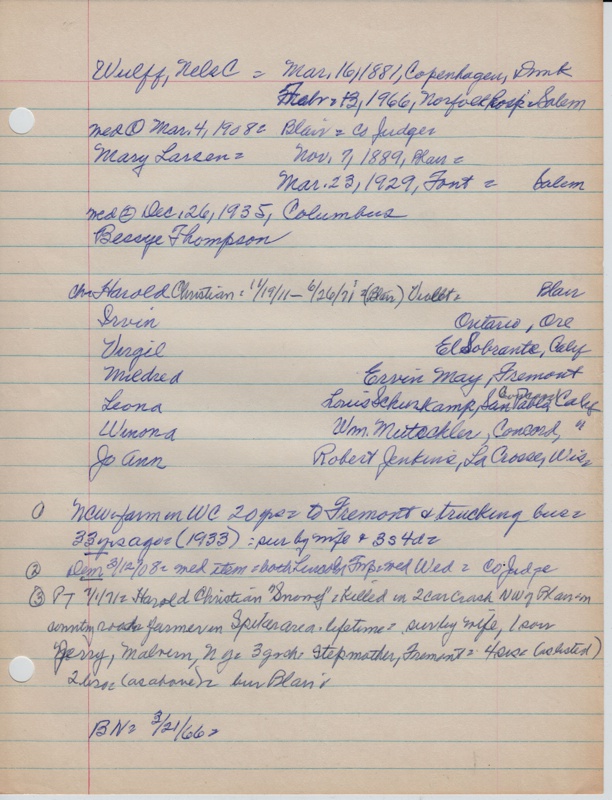 Wulff, Nels C = Mar. 16, 1881, Copenhagen, Dmk
13, 1966, Norfolk Hosp = Salem
med ① Mar. 4, 1908 = Blair = Co Judge =
Mary Larsen = Nov. 7, 1889, Blair =
Mar. 23, 1929, Font = Salem
med ② Dec. 26, 1935, Columbus
Bessye Thompson
ch = Harold Christian = 11/19/11 - 6/26/71 = (Blair) Violet = Blair
Irvin Ontario, Ore
Virgil El Sobrante, Calif
Mildred Ervin May, Fremont
Leona Louis Schurkamp, San Pablo Calif
Winona Wm. , Concord, "
Jo Ann Robert Jenkins, La Crosse, Wis =
① NCW = farm in WC 20 yrs = to Fremont & trucking bus =
33 yrs ago = (1933) = sur by wife & 3s 4d =
② Dem 3/12/08 = med item = both Lincoln Twp = med Wed = Co Judge
③ PT 7/1/71 = Harold Christian "Snowy" = killed in 2 car crash NW of Blair = on
country road = farmer in Spiker area = lifetime = sur by wife, 1 son
Jerry, Malvern, = 3 gch = stepmother, Fremont = 4 sis = (as listed)
2 bros = (as above) = bur Blair =
BN = 3/21/66 =